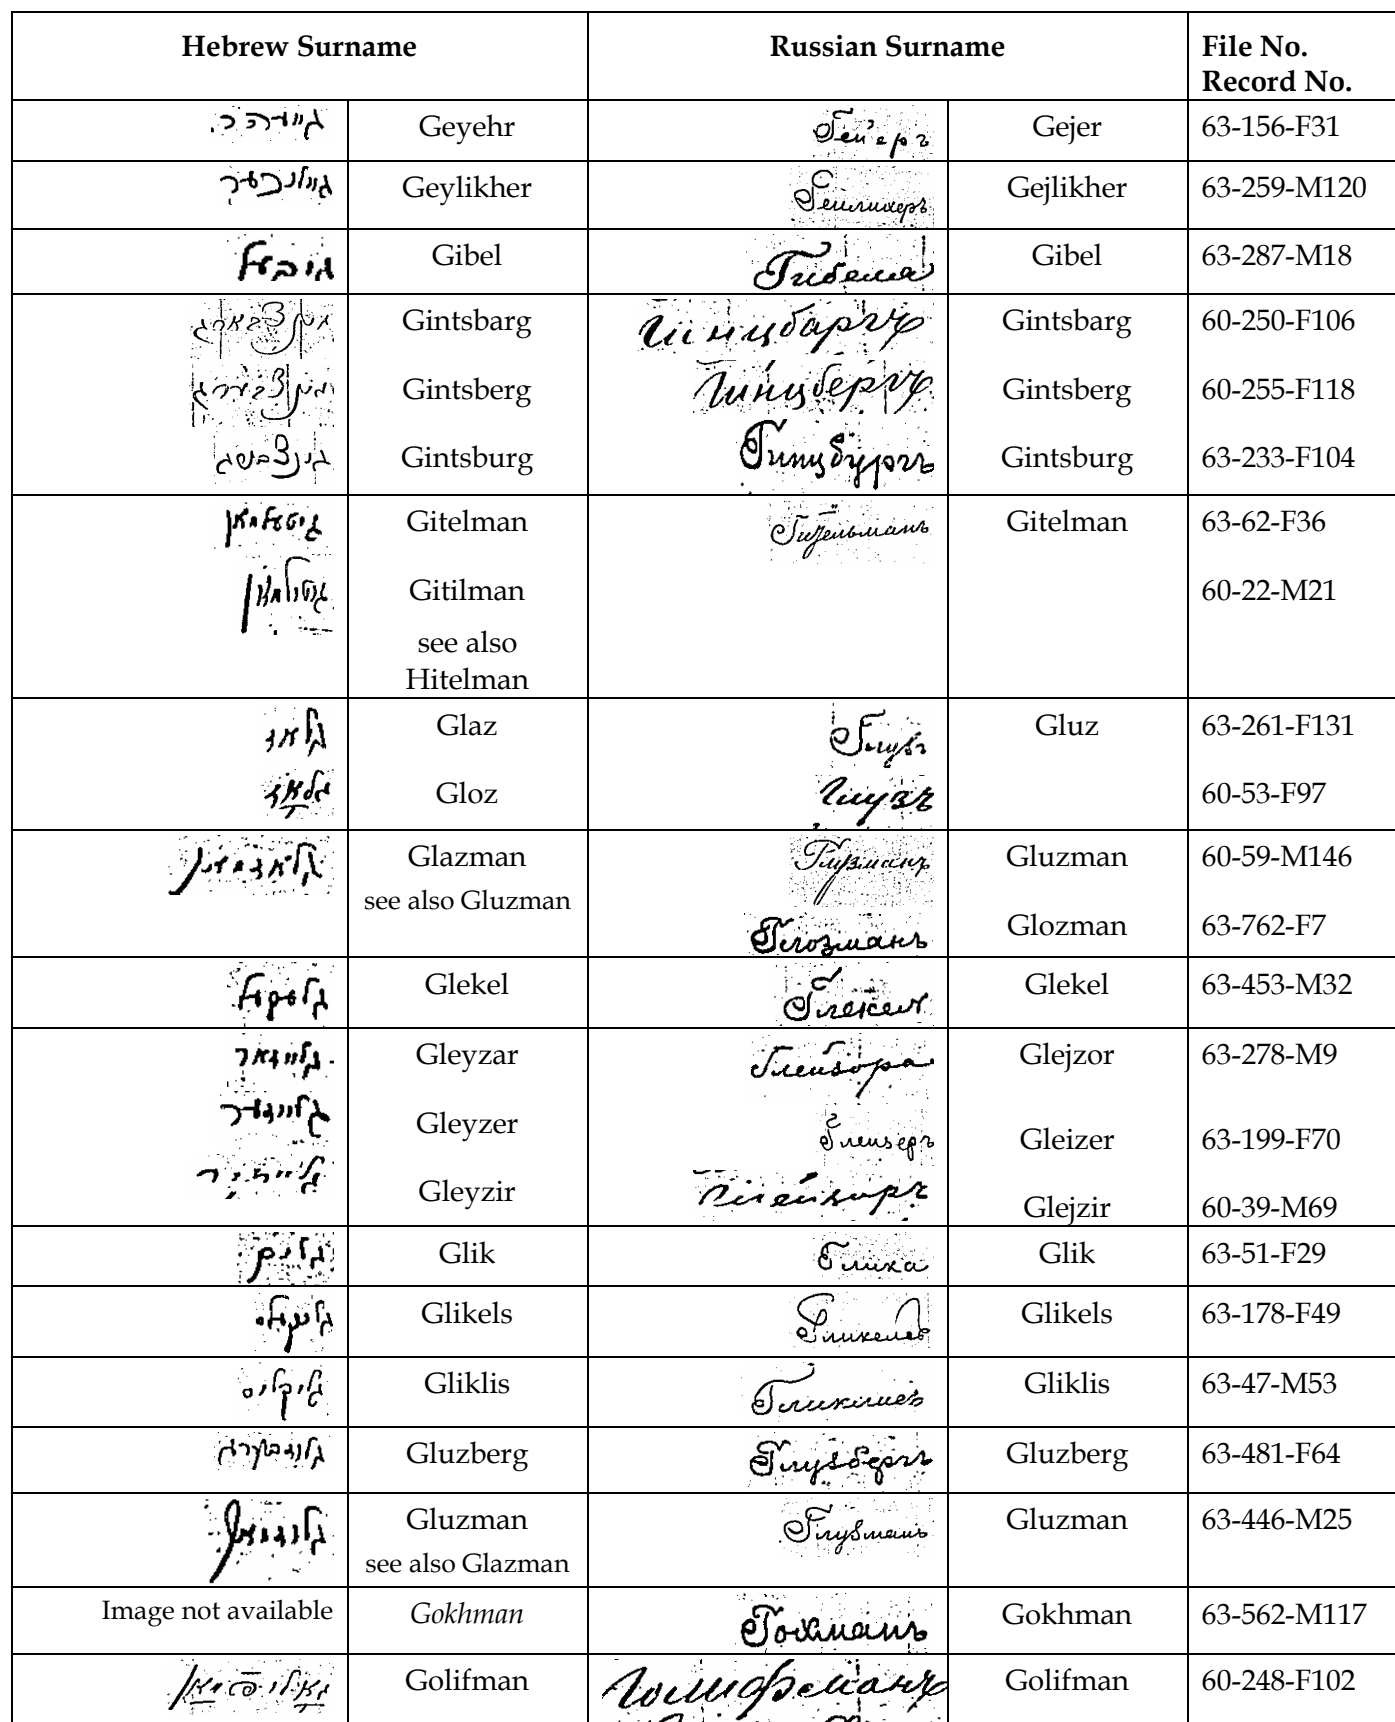 Hebrew Surname Russian Surname File No. Record No.
גייעהר Geyehr Гейеръ Gejer 63-156-F31
גיילכער Geylikher Гейлихеръ Gejlikher 63-259-M120
גיבעל Gibel Гибеля Gibel 63-287-M18
גינצבארג Gintsbarg Гинцбаргъ Gintsbarg 60-250-F106
גינצבערג Gintsberg Гинцбергъ Gintsberg 60-255-F118
Gintsburg Гинцбургъ Gintsburg 63-233-F104
גיטעלמאן Gitelman Гительманъ Gitelman 63-62-F36
גיטילמאן Gitilman 60-22-M21
see also
Hitelman
גלאז Glaz Глузъ Gluz 63-261-F131
גלאז Gloz Глузъ 60-53-F97
גלאזמאן Glazman Глузманъ Gluzman 60-59-M146
see also Gluzman
Глозманъ Glozman 63-762-F7
גלעקעל Glekel Глекель Glekel 63-453-M32
גלייזאר Gleyzar Глейзора Glejzor 63-278-M9
גלייזער Gleyzer Глейзеръ Gleizer 63-199-F70
גלייזיר Gleyzir Глейзиръ Glejzir 60-39-M69
גליק Glik Глика Glik 63-51-F29
גליקעלס Glikels Гликелсъ Glikels 63-178-F49
גליקליס Gliklis Гликлисъ Gliklis 63-47-M53
גלוזבערג Gluzberg Глузбергъ Gluzberg 63-481-F64
גלוזמאן Gluzman Глузманъ Gluzman 63-446-M25
see also Glazman
Image not available Gokhman Гохманъ Gokhman 63-562-M117
גאליפמאן Golifman Голифманъ Golifman 60-248-F102